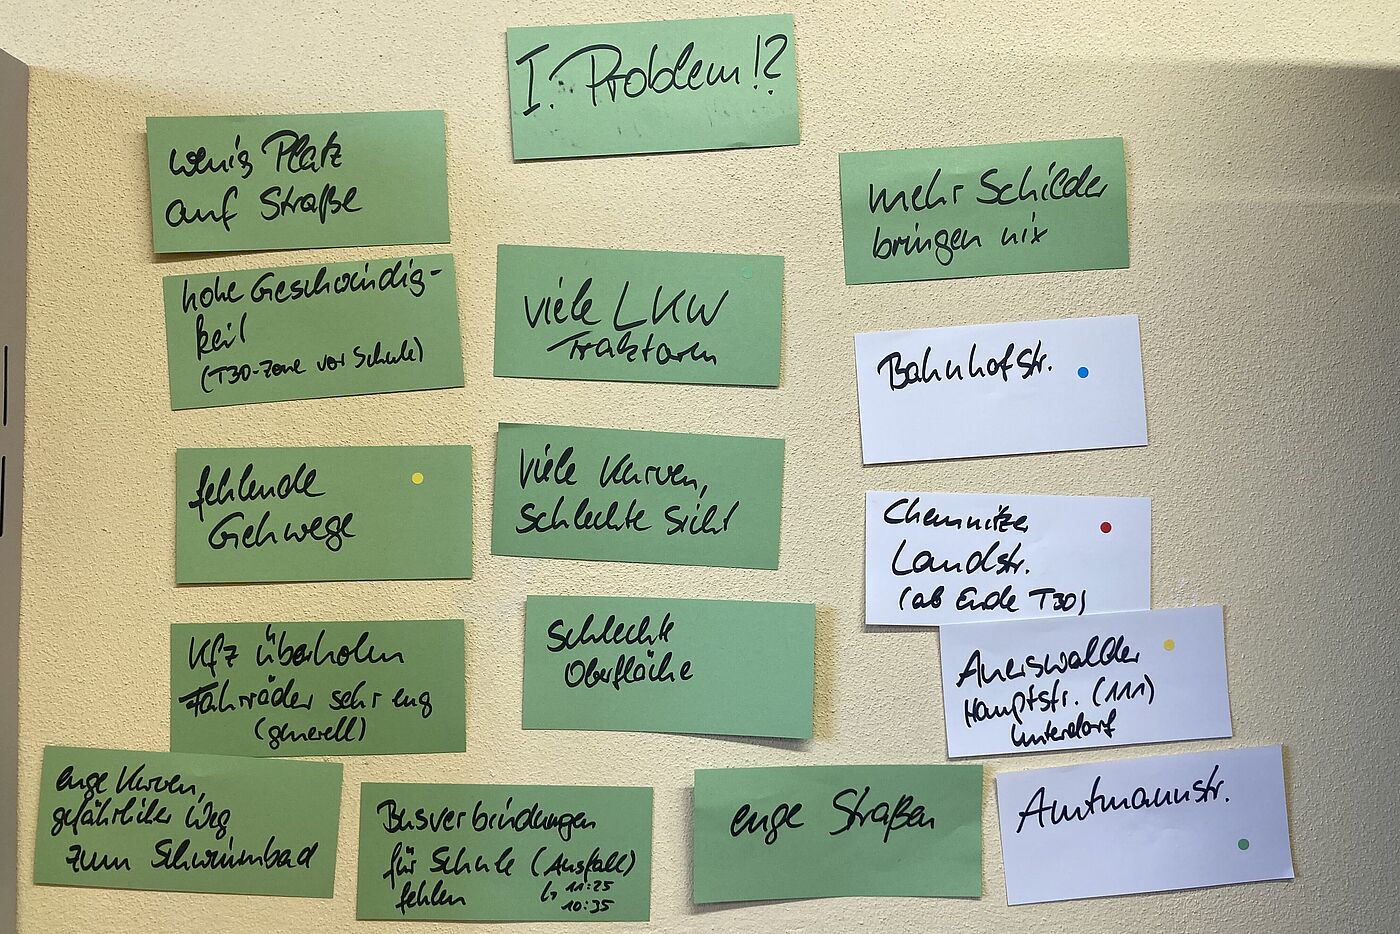 I. Problem!?
wenig Platz
auf Straße
hohe Geschwindig-
keit
(T30-Zone vor Schule)
fehlende
Gehwege
Kfz überholen
Fahrräder sehr eng
(generell)
enge Kurven,
gefährlicher Weg
zum Schwimmbad
Busverbindungen
für Schule (Ausfall)
fehlen ↳ 11:25
10:35
viele LKW
Traktoren
viele Kurven,
schlechte Sicht
schlechte
Oberfläche
enge Straßen
mehr Schilder
bringen nix
Bahnhofstr.
Chemnitzer
Landstr.
(ab Ende T30)
Auerswalder
Hauptstr. (111)
Unterdorf
Amtmannstr.